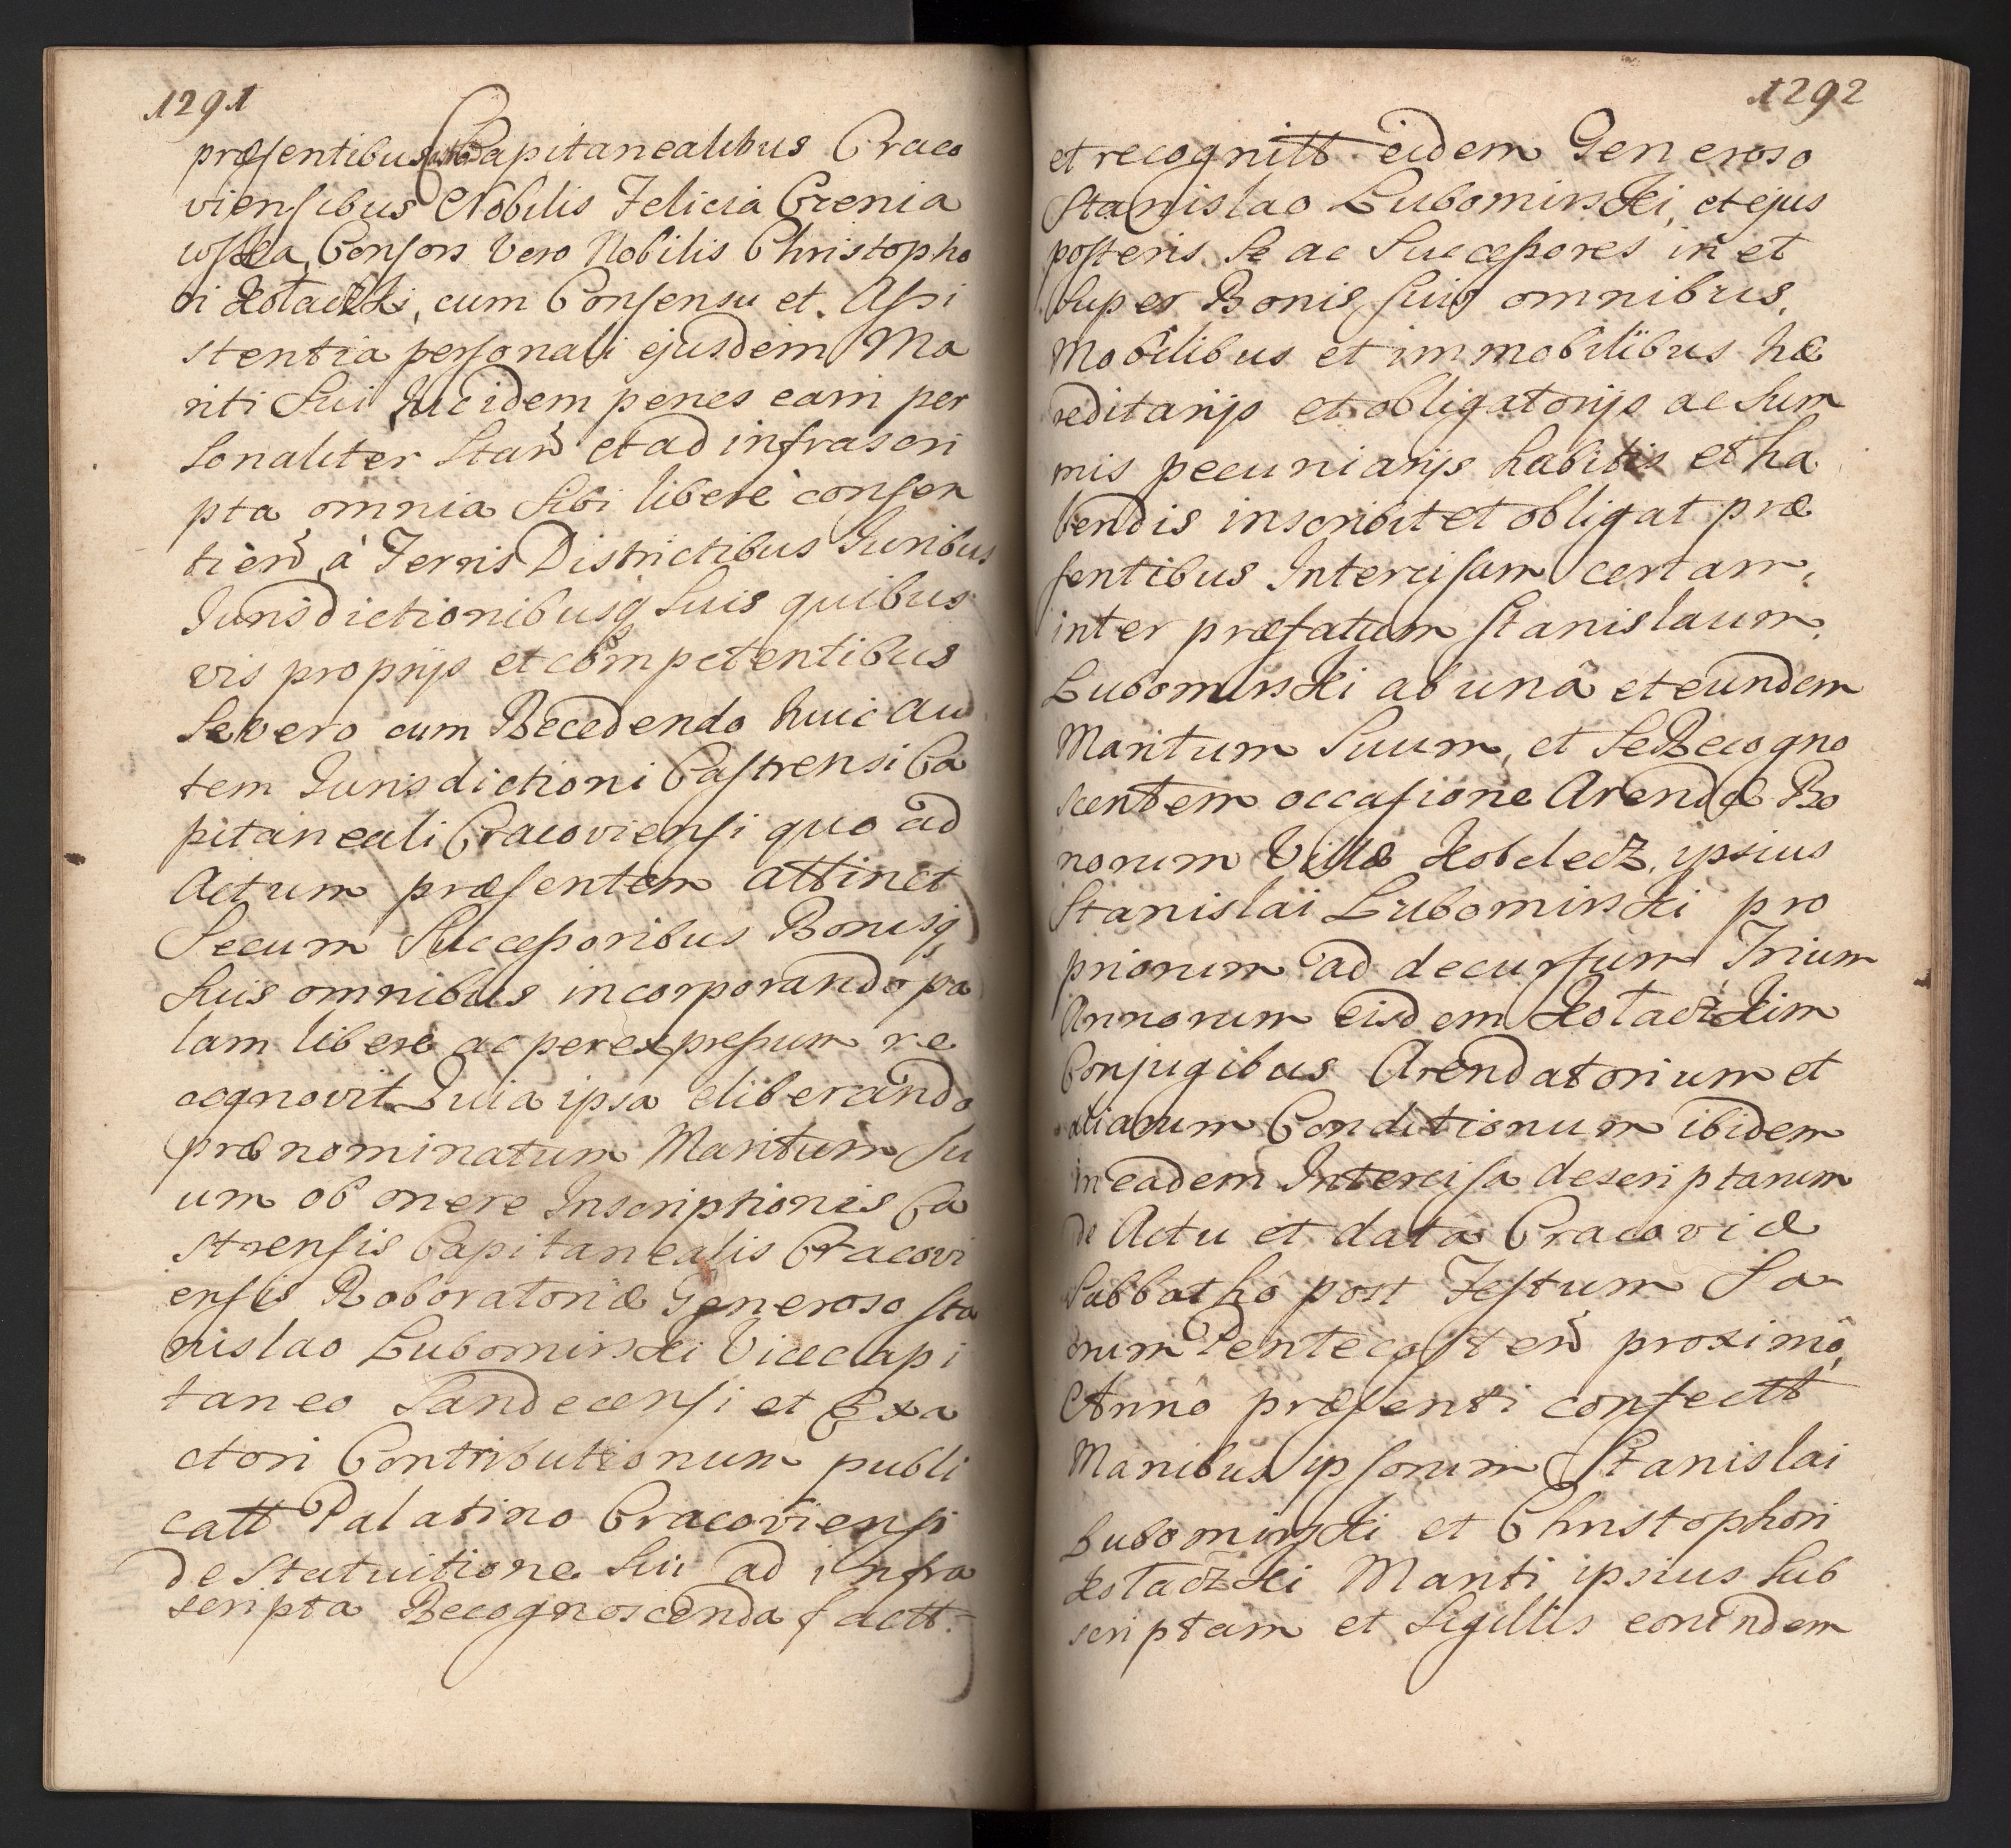 1291
præsentibus Capitanealibus Craco
viensibus Nobilis Felicia Czenia
wska, Consors vero Nobilis Christopho
ri Kołacki, cum Consensu et Assi
stentia personali ejusdem Ma
riti Sui hic idem penes eam per
sonaliter Stan̄ et ad infrascri
pta omnia Sibi liberè consen
tien̄ à Terris Districtibus Juribus
Jurisdictionibusq̃ Suis quibus
vis proprijs et competentibus
Se vero cum Recedendo huic au
tem Jurisdictioni Castrensi Ca
pitaneali Cracoviensi quo ad
Actum præsentem attinet
Secum Successoribus Bonisq̃
Suis omnibus incorporando pa
lam liberè ac per expressum re
cognovit Quia ipsa eliberando
prænominatum Maritum Su
um ob onere Inscriptionis Ca
strensis Capitanealis Cracovi
ensis Roboratoriæ Generoso Sta
nislao Lubomirski Vicecapi
taneo Sandecensi et Exa
ctori Contributionum publi
catt Palatino Cracoviensi
de Statuitione Sui ad infra
scripta Recognoscenda factt.
1292
et recognitt eidem Generoso
Stanislao Lubomirski, et ejus
posteris Se ac Successores in et
Super Bonis Suis omnibus,
Mobilibus et immobilibus hæ
reditarijs et obligatorijs ac Sum
mis pecuniarijs habitis et ha
bendis inscribit et obligat præ
sentibus Intercisam certam,
inter præfatum Stanislaum,
Lubomirski ab unâ et eundem
Maritum Suum, et Se Recogno
scentem occasione Arendæ Bo
norum Villæ Kobelecz, ipsius
Stanislai Lubomirski pro
priorum ad decursum Trium
Annorum eisdem Kołaczkim
Conjugibus Arendatorium et
aliarum Conditionum ibidem
in eadem Intercisa descriptarum
de Actu et data Cracoviæ
Sabbathô post Festum Sa
crum Pentecosten̄ proximô,
Annô præsenti confectt
Manibus ipsorum Stanislai
Lubomirski et Christophori
Kołaczki Mariti ipsius Sub
scriptam et Sigillis eorundem